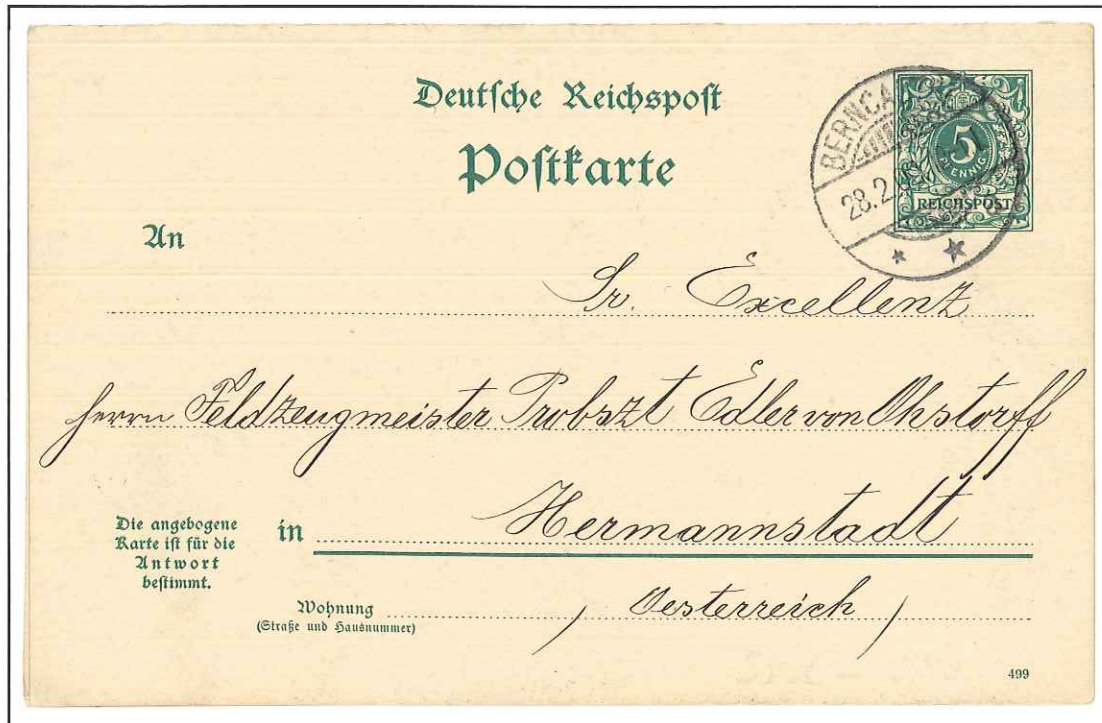 Deutsche Reichspost
Postkarte
5
PFENNIG
REICHSPOST
28.2.
An
Sr. Excellenz
Herrn Feldzeugmeister Probszt Edler von Ohstorff
Die angebogene
Karte ist für die
Antwort
bestimmt.
in Hermannstadt
Wohnung
(Straße und Hausnummer)
(Oesterreich)
499